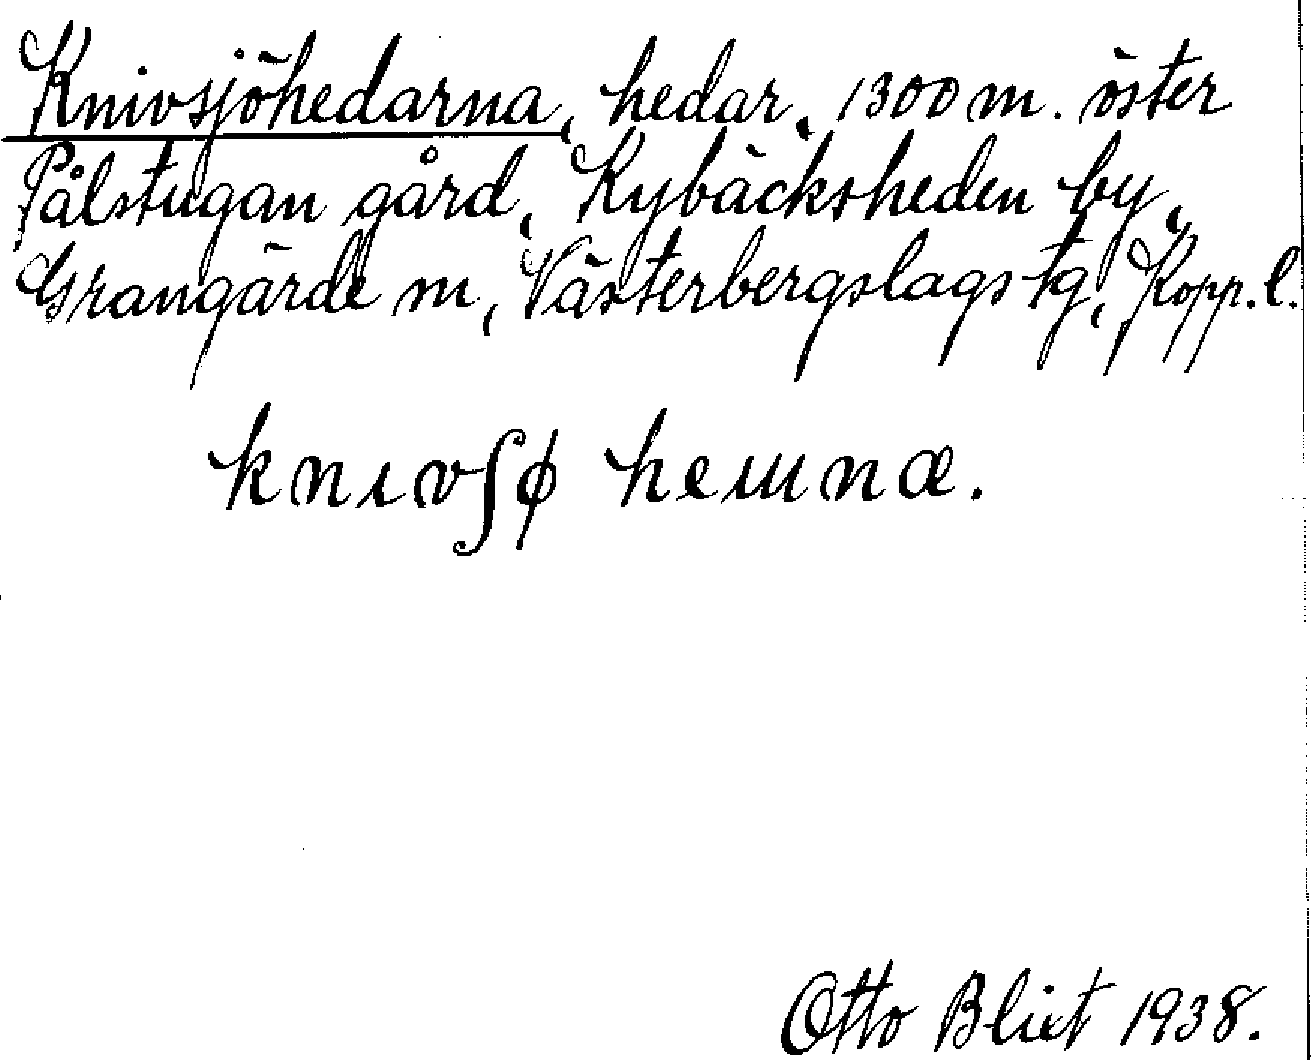 Knivsjöhedarna, hedar, 1300 m. öster
Pålstugan gård, Rybäcksheden by,
Grangärde m, Västerbergslags tg, Kopp. l.
knıvʃø heɯnæ.
Otto Blixt 1938.